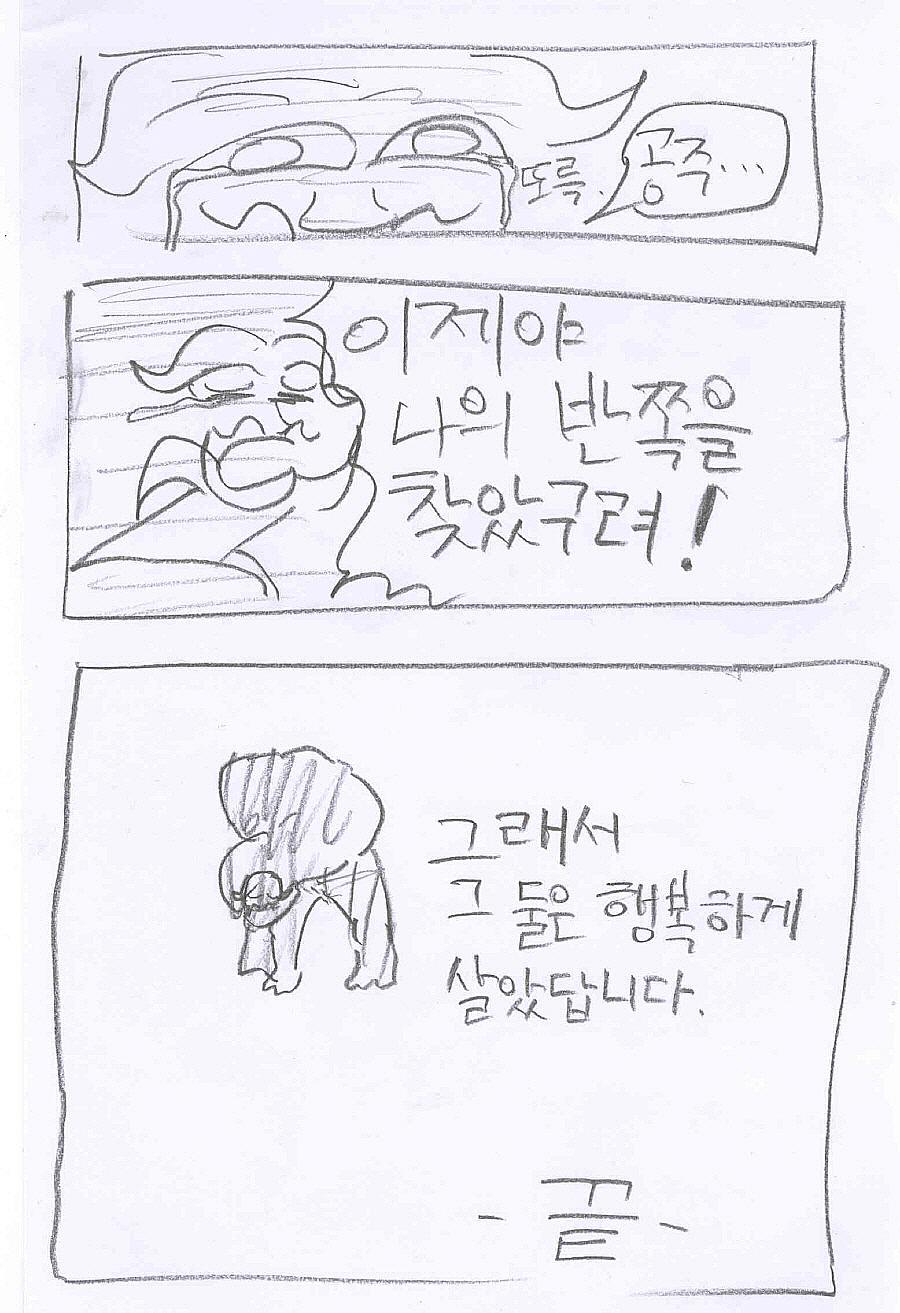 도륵.
공주...
이제야
나의 반쪽을
찾았구려!
그래서
그 둘은 행복하게
살았답니다.
- 끝 -